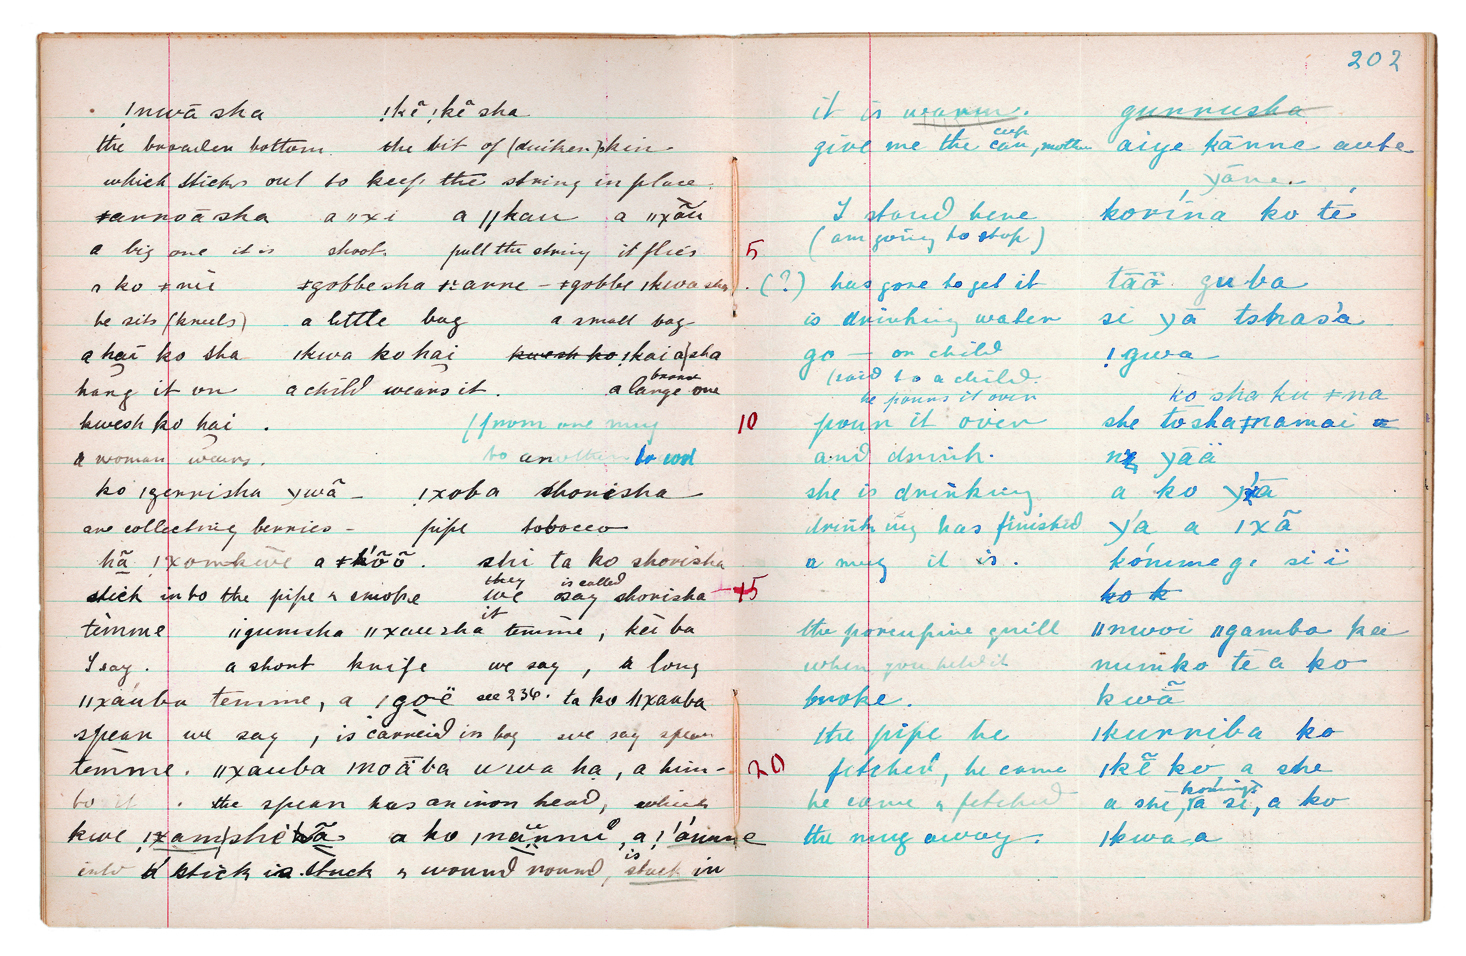 ǃnwā sha ǃkẽ ǃkẽ sha
the broader bottom the bit of (duiker) skin
which sticks out to keep the string in place.
ǂarroā sha a ǁxi a ǁkau a ǁxãu
a big one it is shoot. pull the string it flies
a ko ǂnĩ ǂgobbesha ǂarre - ǂgobbe ǀkwa sha
he sits (kneels) a little bag a small bag
a hai ko sha ǀkwa ko hai kwesh ko ǃkai a sha
hang it on a child wears it. a large brown one
kwesh ko hai . (from one mug
a woman wears. to another to cool
ko ǀgerrisha ywã - ǃxoba shorisha
are collecting berries - pipe tobacco
hã ǃxomkwe a ǂkõõ . shi ta ko shorisha
stick into the pipe & smoke they we is called say shorisha
temme ǁgumsha ǁxausha it temme, kēi ba
I say. a short knife we say, a long
ǁxauba temme, a ǀgoë see 236. ta ko ǁxauba
spear we say, is carried in bag we say spear
temme. ǁxauba ǀnoāba uwa ha, a him-
to it . the spear has an iron head, which
kwe ǃxam shé a ko ǀnannu, a
into a stick is stuck & wound round, is stuck in
202
it is warm. gurrusha
give me the can, cup mother aiye kānne aube
yāne.
I stand here korína ko tē
(am going to stop)
5
(?) has gone to get it tāä guba
is drinking water si yā tshas'a
go — on child ǃgwa
(said to a child.
he pours it over ko sha ku ǂna
10 pour it over she tosha ǂnamai
and drink. yāä
she is drinking a ko yā
drinking has finished y'a a ǀxã
a mug it is. kómmege si ï
15 ko k
the porcupine quill ǁnwoi ǁgamba kee
when you held it numko tē a ko
broke. kwã
the pipe he ǀkurriba ko
20 fetched, he came ǀkẽ ko a she
he came & fetched a she, ta si, a ko
the mug away. ǀkwa a